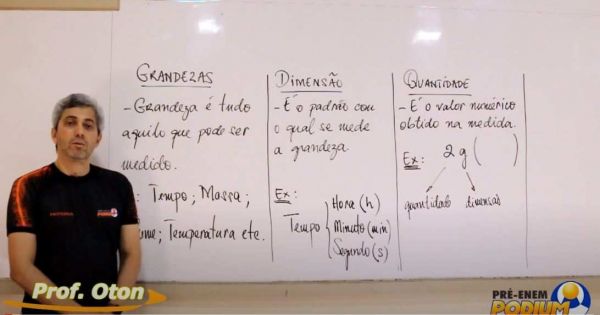 GRANDEZAS
- Grandeza é tudo
aquilo que pode ser
medido.
: Tempo; Massa;
me; Temperatura etc.
DIMENSÃO
- É o padrão com
o qual se mede
a grandeza.
Ex:
Tempo { Hora (h)
Minuto (min)
Segundo (s)
QUANTIDADE
- É o valor numérico
obtido na medida.
Ex: 2 g ( )
quantidade dimensão
PODIUM
Prof. Oton
PRÉ-ENEM
PODIUM